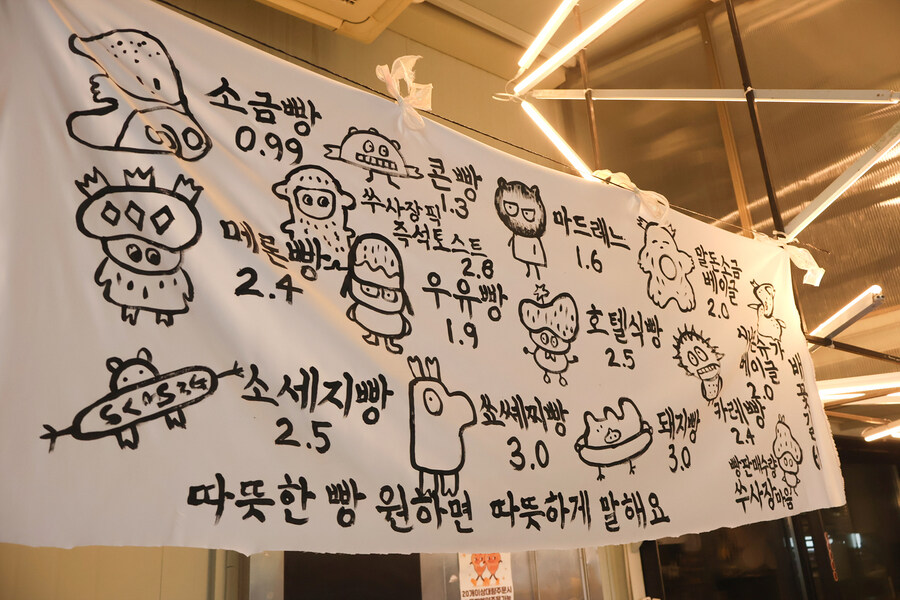 소금빵
0.99
콘빵
1.3
쑤사장픽
즉석토스트
2.8
마드레느
1.6
말돈소금
베이글
2.0
메론빵
2.4
우유빵
1.9
호텔식빵
2.5
베이글
2.0
소세지빵
2.5
쏘쎄찌빵
3.0
돼지빵
3.0
카레빵
2.4
빵판매수량
쑤사장마음
따뜻한 빵 원하면 따뜻하게 말해요
20개이상대량주문시